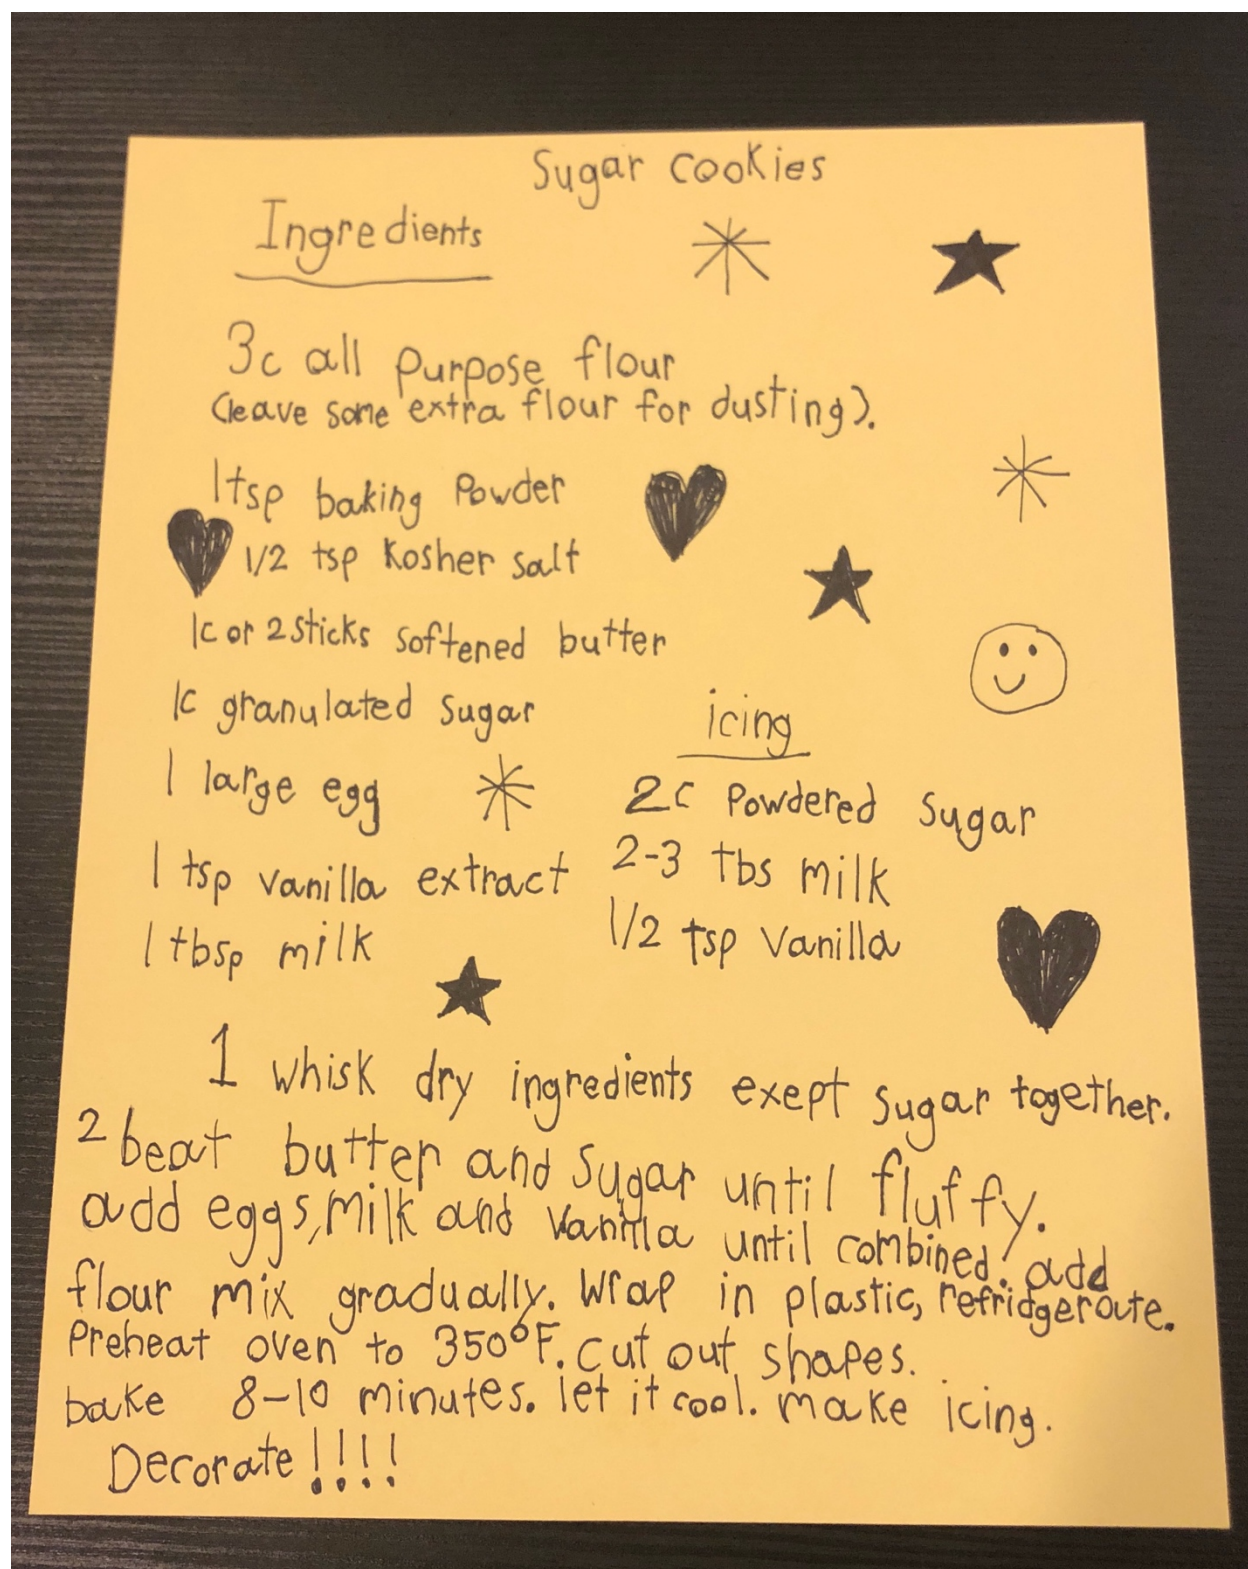 Sugar cookies
Ingredients
3c all purpose flour
(leave some extra flour for dusting).
1tsp baking Powder
1/2 tsp Kosher salt
1c or 2 sticks softened butter
1c granulated sugar
1 large egg
1 tsp vanilla extract
1 tbsp milk
icing
2c Powdered sugar
2-3 tbs milk
1/2 tsp vanilla
1 whisk dry ingredients exept sugar together.
2 beat butter and sugar until fluffy.
add eggs, milk and vanilla until combined. add
flour mix gradually. Wrap in plastic, refridgeroute.
Preheat oven to 350°F. cut out shapes.
bake 8-10 minutes. let it cool. make icing.
Decorate!!!!